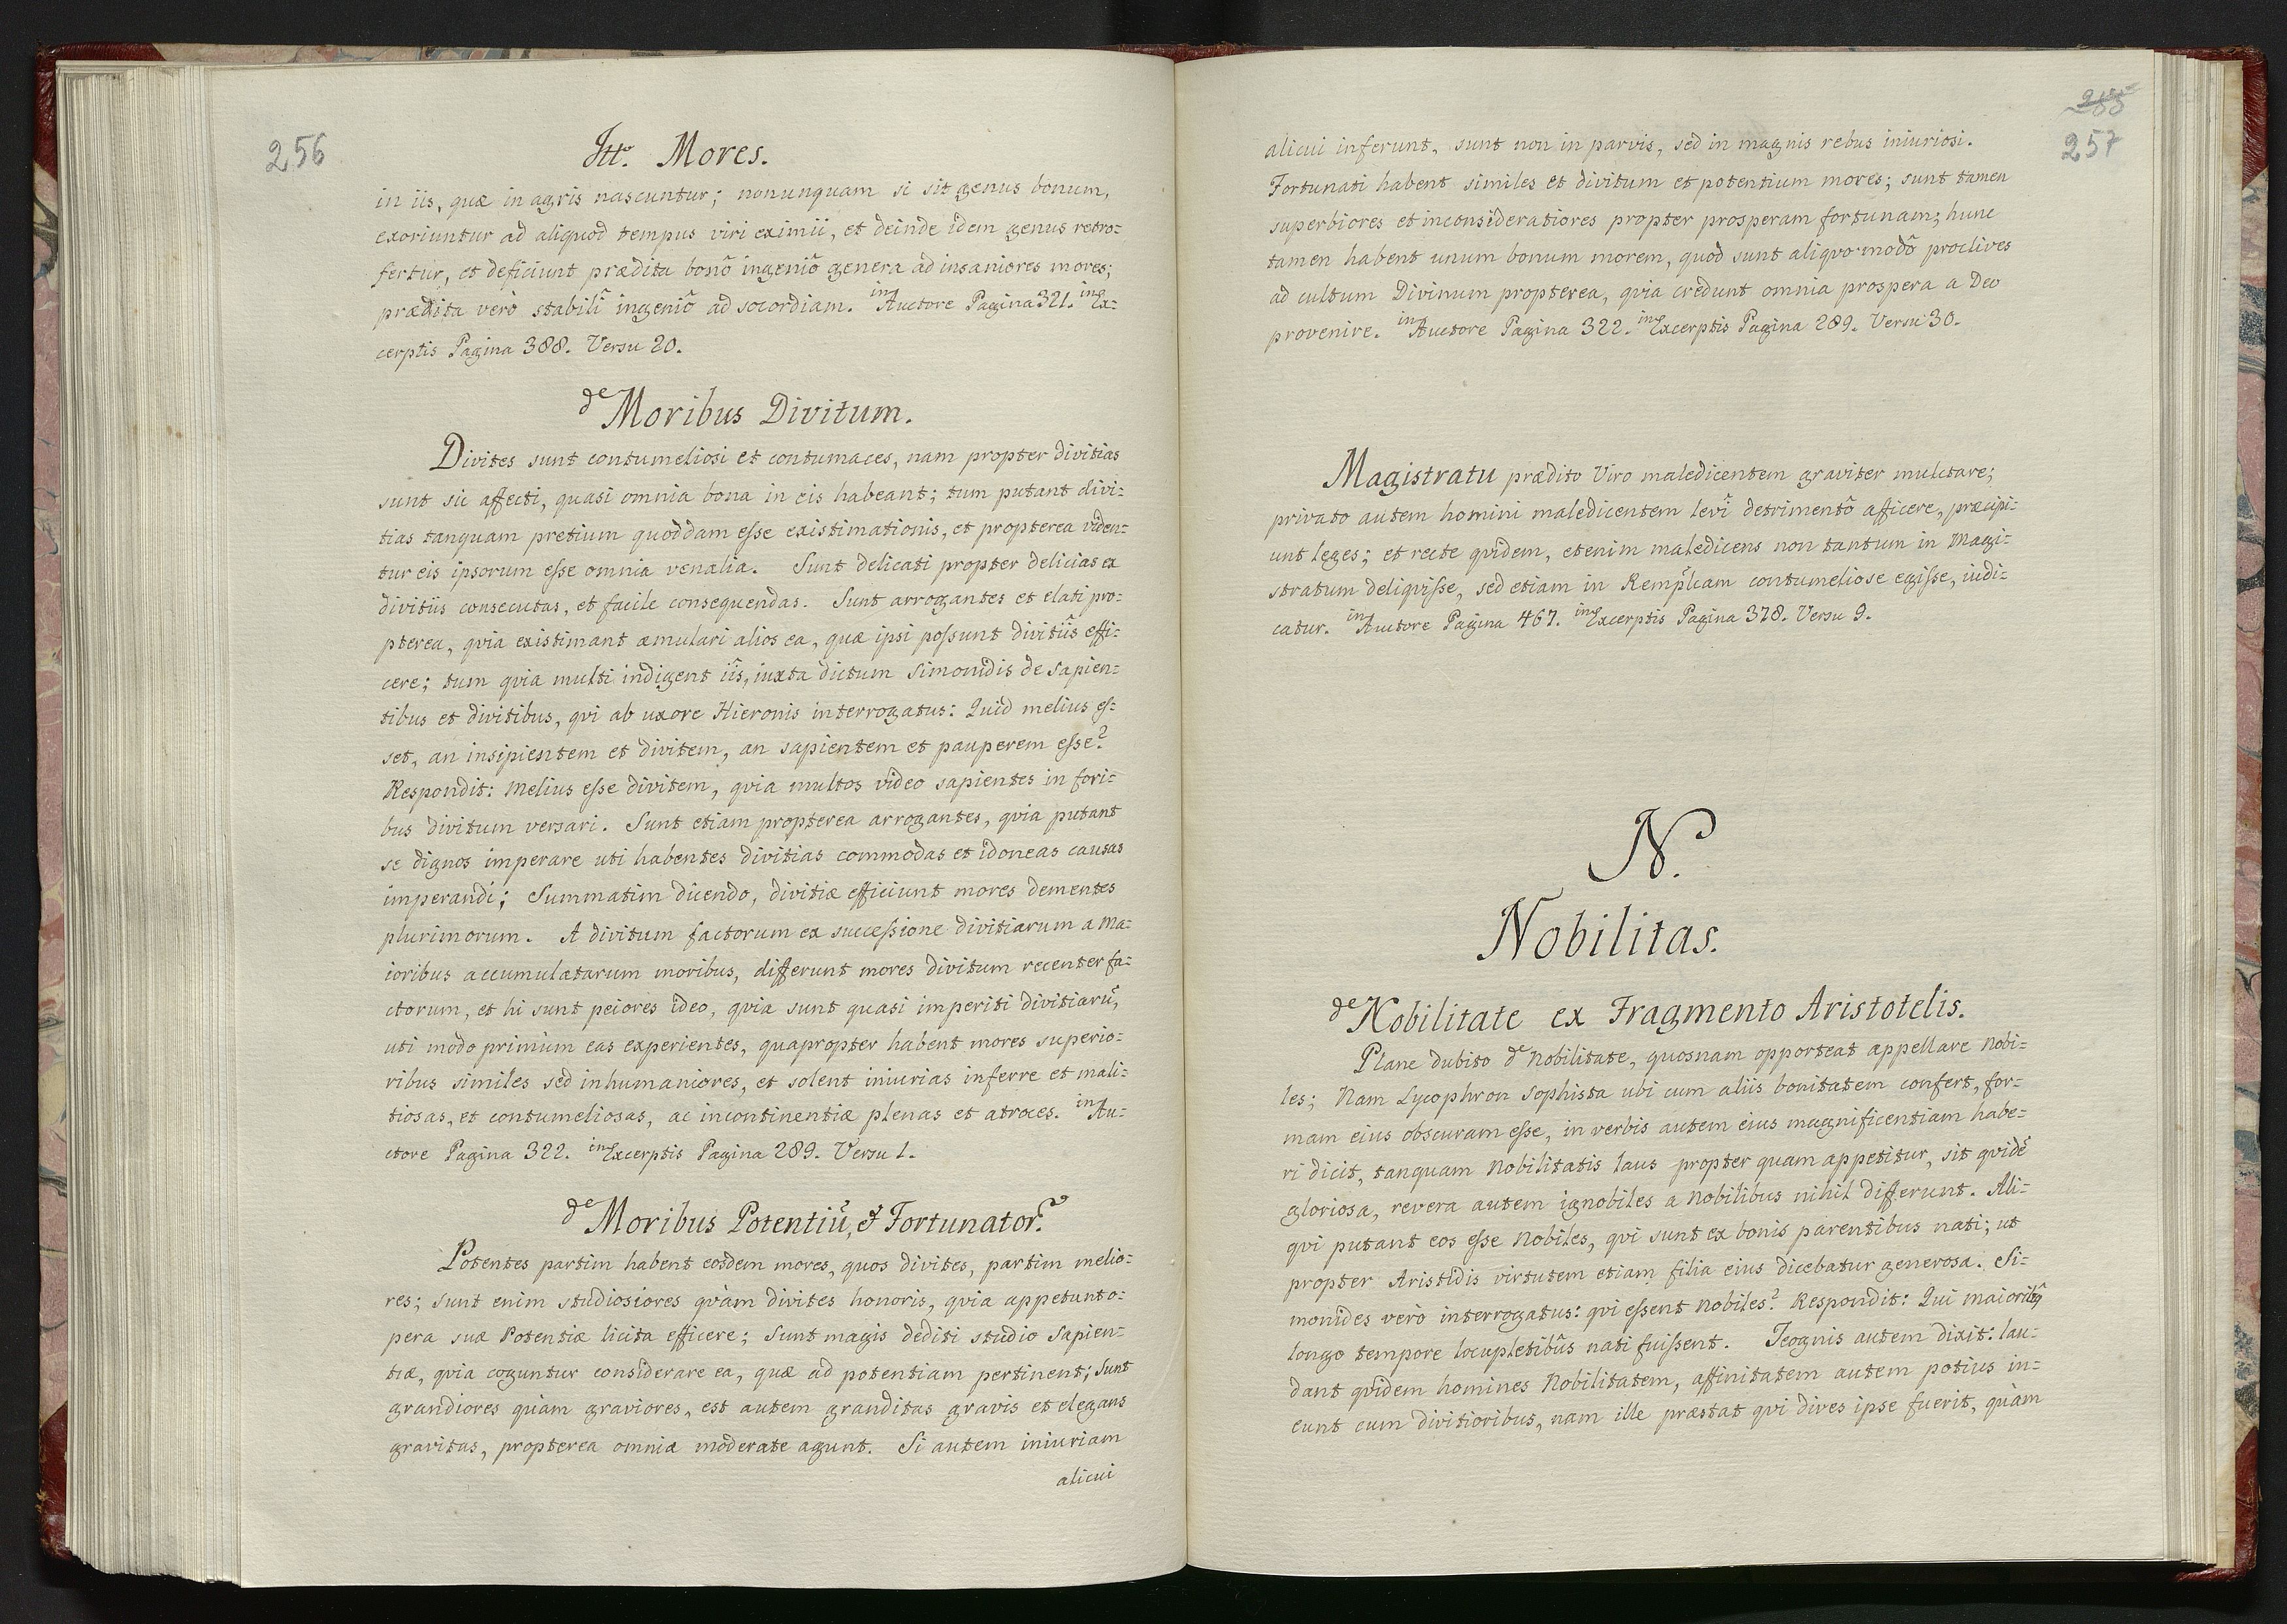 256
Itt. Mores.
in iis, quæ in agris nascuntur; nonunquam si sit genus bonum,
exoriuntur ad aliquod tempus viri eximii, et deinde idem genus retro=
fertur, et deficiunt prædita bonô ingeniô genera ad insaniores mores;
prædita verò stabilî ingeniô ad socordiam. in Auctore Pagina 321. in Ex=
cerptis Pagina 388. Versu 20.
de Moribus Divitum.
Divites sunt contumeliosi et contumaces, nam propter divitias
sunt sic affecti, quasi omnia bona in eis habeant; tum putant divi=
tias tanquam pretium quoddam esse existimationis, et propterea viden=
tur eis ipsorum esse omnia venalia. Sunt delicati propter delicias ex
divitiis consecutas, et facile consequendas. Sunt arrogantes et elati pro=
pterea, qvia existimant æmulari alios ea, quæ ipsi possunt divitiîs effi=
cere; tum qvia multi indigent iîs, iuxta dictum Simonidis de Sapien=
tibus et divitibus, qvi ab uxore Hieronis interrogatus: Quid melius es=
set, an insipientem et divitem, an sapientem et pauperem esse?
Respondit: Melius esse divitem, qvia multos video sapientes in fori=
bus divitum versari. Sunt etiam propterea arrogantes, qvia putant
se dignos imperare uti habentes divitias commodas et idoneas causas
imperandi; Summatim dicendo, divitiæ efficiunt mores dementes
plurimorum. A divitum factorum ex successione divitiarum a Ma=
ioribus accumulatarum moribus, differunt mores divitum recenter fa=
ctorum, et hi sunt peiores ideo, qvia sunt quasi imperiti divitiarũ,
uti modo primùm eas experientes, quapropter habent mores superio=
ribus similes sed inhumaniores, et solent iniurias inferre et mali=
tiosas, et contumeliosas, ac incontinentiæ plenas et atroces. in Au=
ctore Pagina 322. in Excerptis Pagina 289. Versu 1.
de Moribus Potentiũ, et Fortunator.
Potentes partim habent eosdem mores, quos divites, partim melio=
res; sunt enim studiosiores qvàm divites honoris, qvia appetunt o=
pera suæ Potentiæ licita efficere; Sunt magis dediti studio Sapien=
tiæ, qvia coguntur considerare ea, quæ ad potentiam pertinent; Sunt
grandiores quàm graviores, est autem granditas gravis et elegans
gravitas, propterea omnia moderate agunt. Si autem iniuriam
alicui
255
257
alicui inferunt, sunt non in parvis, sed in magnis rebus iniuriosi.
Fortunati habent similes et divitum et potentium mores; sunt tamen
superbiores et inconsideratiores propter prosperam fortunam; hunc
tamen habent unum bonum morem, quod sunt aliqvo modô proclives
ad cultum Divinum propterea, qvia credunt omnia prospera a Deo
provenire. in Auctore Pagina 322. in Excerptis Pagina 289. Versu 30.
Magistratu prædito Viro maledicentem graviter mulctare;
privato autem homini maledicentem levî detrimentô afficere, præcipi=
unt leges; et recte qvidem, etenim maledicens non tantum in Magi=
stratum deliqvisse, sed etiam in Remplcam contumeliose egisse, iudi=
catur. in Auctore Pagina 467. in Excerptis Pagina 378. Versu 9.
N.
Nobilitas.
de Nobilitate ex Fragmento Aristotelis.
Plane dubito de Nobilitate, quosnam opporteat appellare Nobi=
les; Nam Lycophron Sophista ubi cum aliis bonitatem confert, for=
mam eius obscuram esse, in verbis autem eius magnificentiam habe=
ri dicit, tanquam Nobilitatis laus propter quam appetitur, sit qvidẽ
gloriosa, revera autem ignobiles a Nobilibus nihil differunt. Ali=
qvi putant eos esse Nobiles, qvi sunt ex bonis parentibus nati; ut
propter Aristidis virtutem etiam filia eius dicebatur generosa. Si=
monides verò interrogatus: qvi essent Nobiles? Respondit: Qui maioribꝰ
longo tempore locupletibûs nati fuissent. Teognis autem dixit: lau=
dant qvidem homines Nobilitatem, affinitatem autem potius in=
eunt cum divitioribus, nam ille præstat qvi dives ipse fuerit, quàm